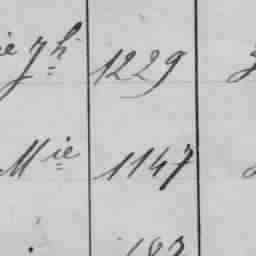 ie Jh 1229
Mie 1147